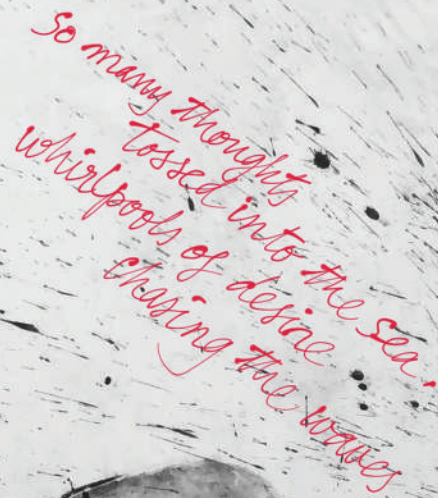 so many thoughts
tossed into the sea.
whirlpools of desire
chasing the waves